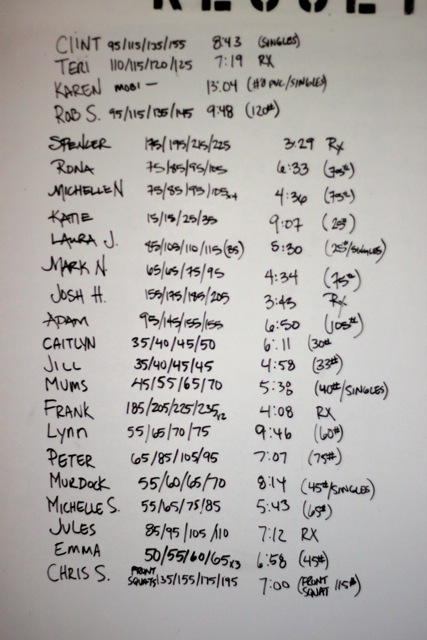 CLINT 95/115/135/155 8:43 (SINGLES)
TERI 110/115/120/125 7:19 RX
KAREN MOBI — 13:04 (#8 PVC/SINGLES)
ROB S. 95/115/135/145 9:48 (120#)
SPENCER 175/195/215/225 3:29 Rx
RONA 75/85/95/105 6:33 (75#)
MICHELLE N 75/85/95/105x4 4:36 (75#)
KATIE 15/15/25/35 9:07 (25#)
LAURA J. 85/105/110/115(85) 5:30 (25#/SINGLES)
MARK N. 65/65/75/95 4:34 (75#)
JOSH H. 155/175/185/205 3:43 Rx
ADAM 95/145/155/155 6:50 (105#)
CAITLYN 35/40/45/50 6:11 (30#
JILL 35/40/45/45 4:58 (33#)
MUMS 45/55/65/70 5:38 (40#/SINGLES)
FRANK 185/205/225/235x2 4:08 RX
Lynn 55/65/70/75 9:46 (60#)
PETER 65/85/105/95 7:07 (75#)
MURDOCK 55/60/65/70 8:14 (45#/SINGLES)
MICHELLE S. 55/65/75/85 5:43 (65#)
JULES 85/95/105/110 7:12 RX
EMMA 50/55/60/65x3 6:58 (45#)
CHRIS S. FRONT SQUATS 135/155/175/195 7:00 (FRONT SQUAT 115#)